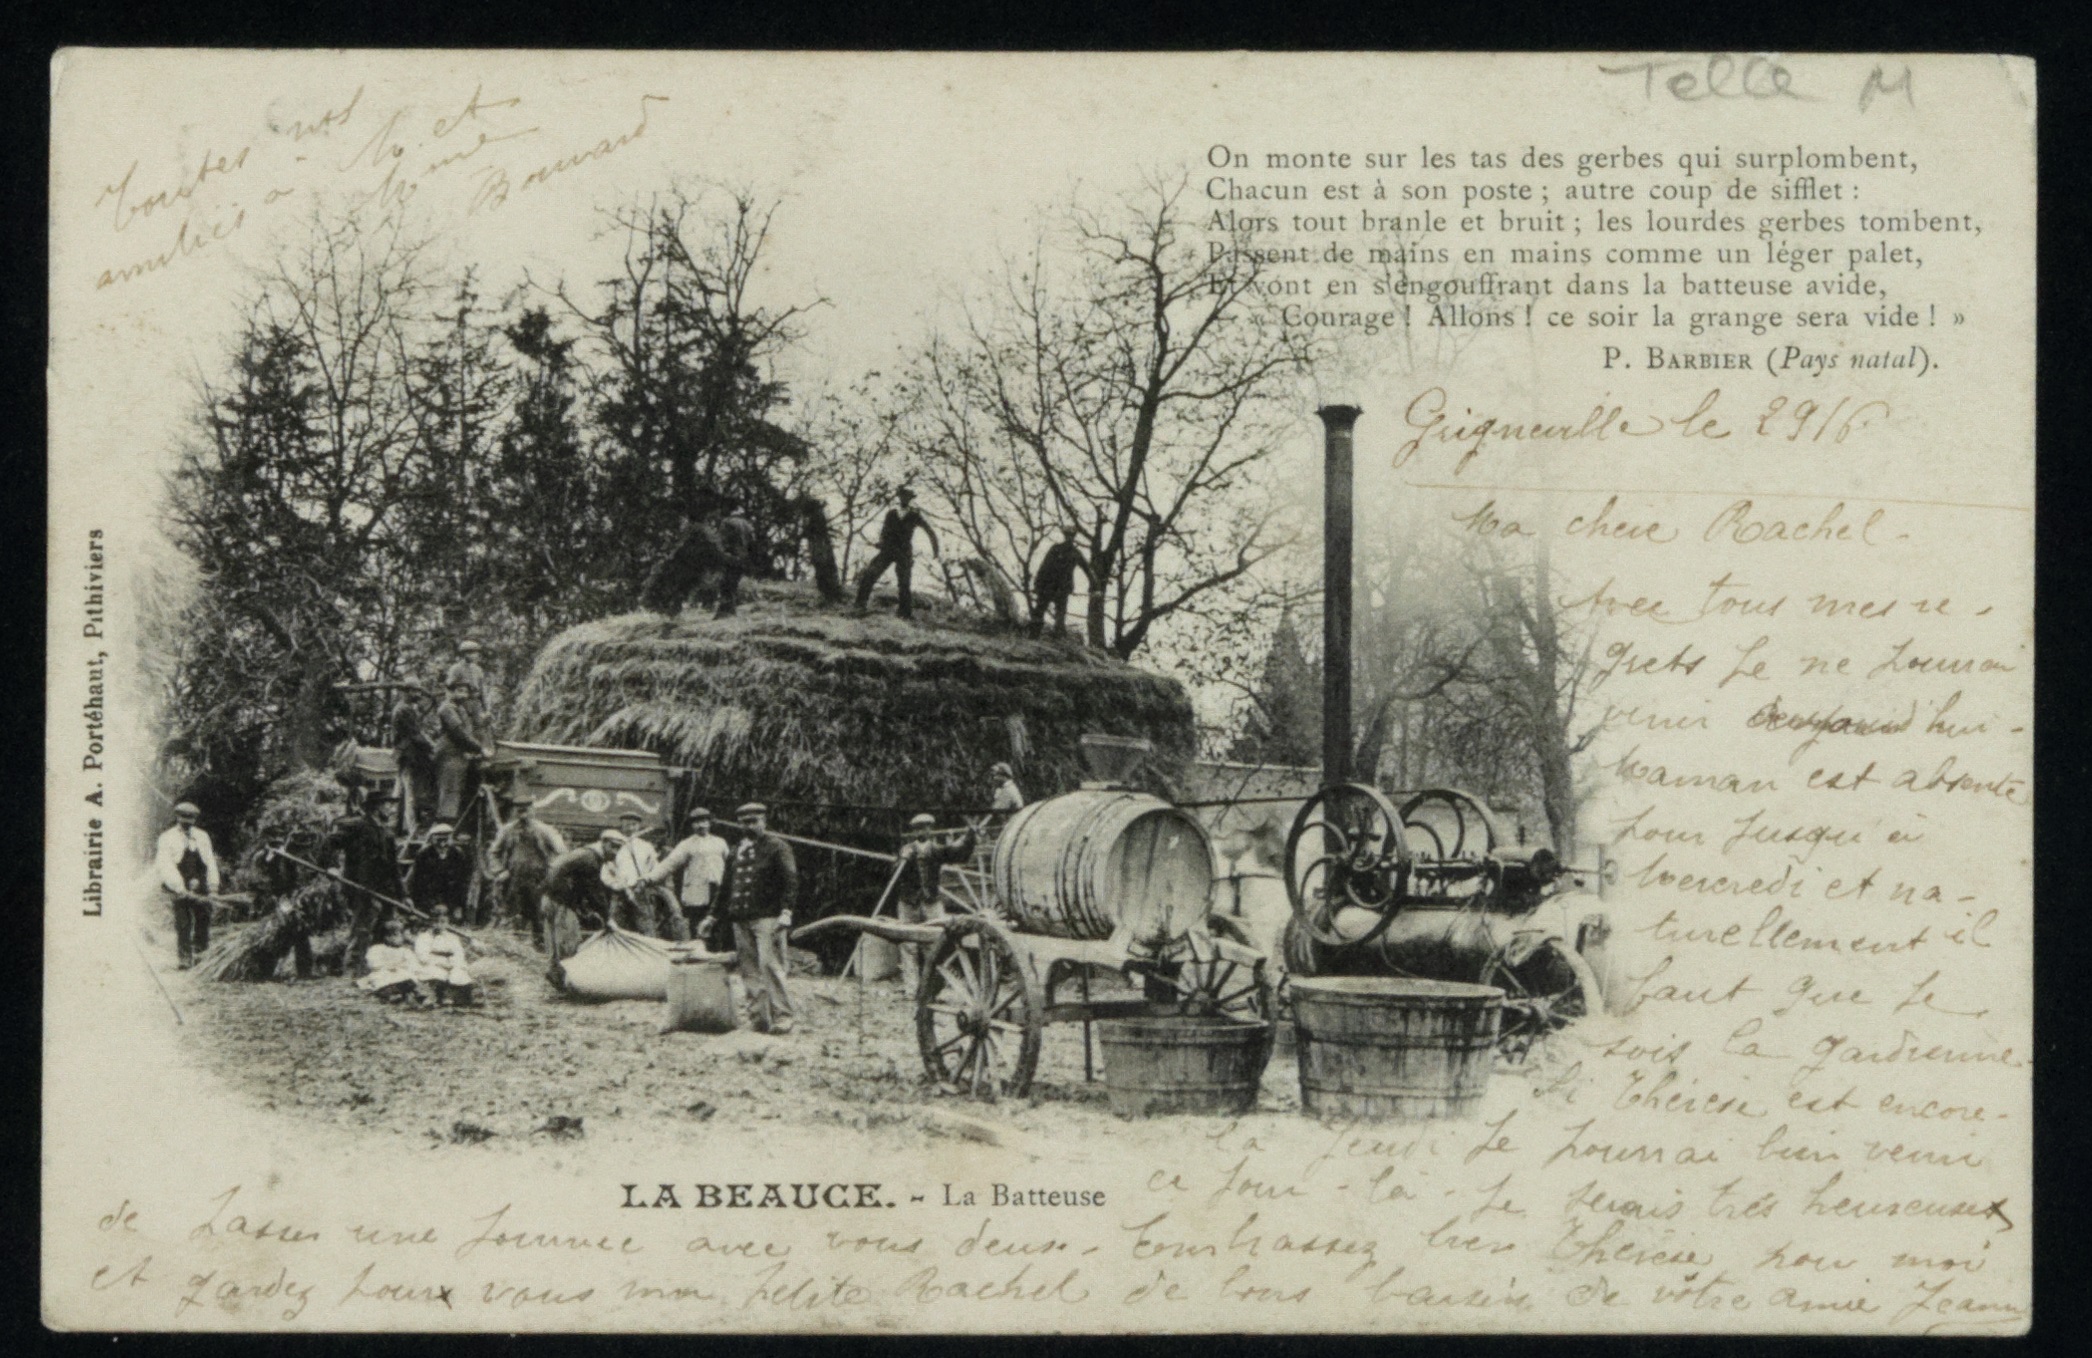 Telle M
Toutes nos
amitiés à M. et
Mme
Bouvard
On monte sur les tas des gerbes qui surplombent,
Chacun est à son poste ; autre coup de sifflet :
Alors tout branle et bruit ; les lourdes gerbes tombent,
Passent de mains en mains comme un léger palet,
Et vont en s'engouffrant dans la batteuse avide,
— « Courage ! Allons ! ce soir la grange sera vide ! »
P. BARBIER (Pays natal).
Grigneville le 29/6
Ma chère Rachel -
Avec tous mes re -
grets je ne pourrai
venir aujourd'hui -
Maman est absente
pour jusqu'à
Mercredi et na -
turellement il
faut que je
sois la gardienne
Si Thérèse est encore -
là jeudi je pourrai bien venir
ce jour-là - je serais très heureuse
Librairie A. Portéhaut, Pithiviers
LA BEAUCE. - La Batteuse
de passer une journée avec vous deux - Embrassez bien Thérèse pour moi
et gardez pour vous ma petite Rachel de bons baisers de vôtre amie Jeanne